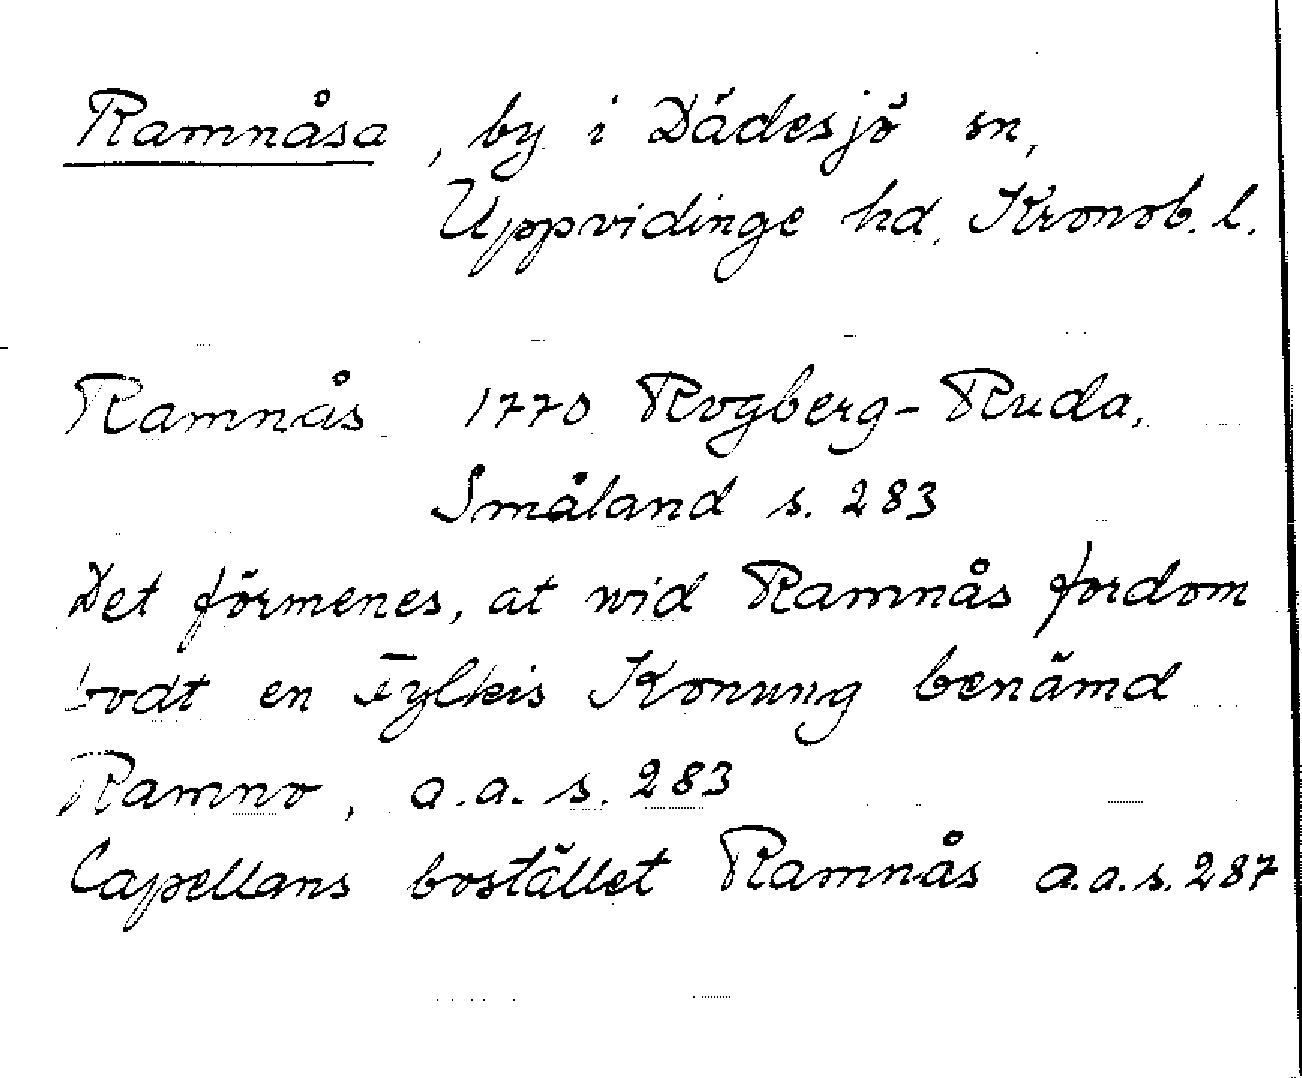 Ramnåsa, by i Dädesjö sn,
Uppvidinge hd, Kronob. l.
Ramnås 1770 Rogberg-Ruda,
Småland s. 283
Det förmenes, at wid Ramnås fordom
bodt en Fylkis Konung benämd
Ramno, a.a. s. 283
Capellans bostället Ramnås a.a.s. 287